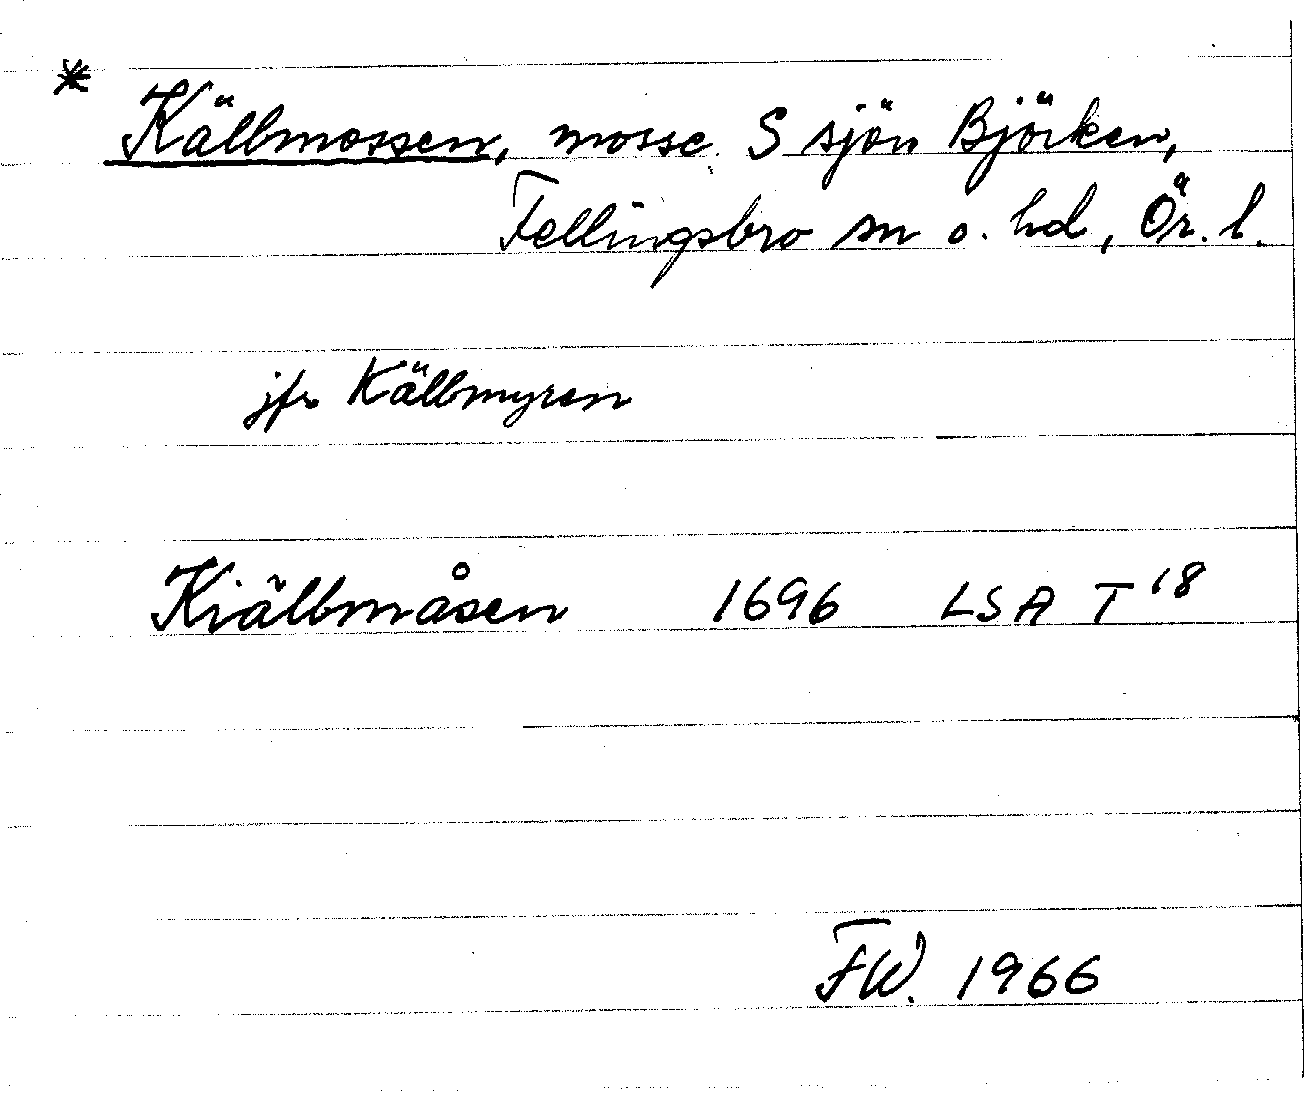 * Källmossen, mosse S sjön Björken,
Fellingsbro sn o. hd, Ör. l.
jfr Källmyren
Kiällmåsen 1696 LSA T 18
FW. 1966